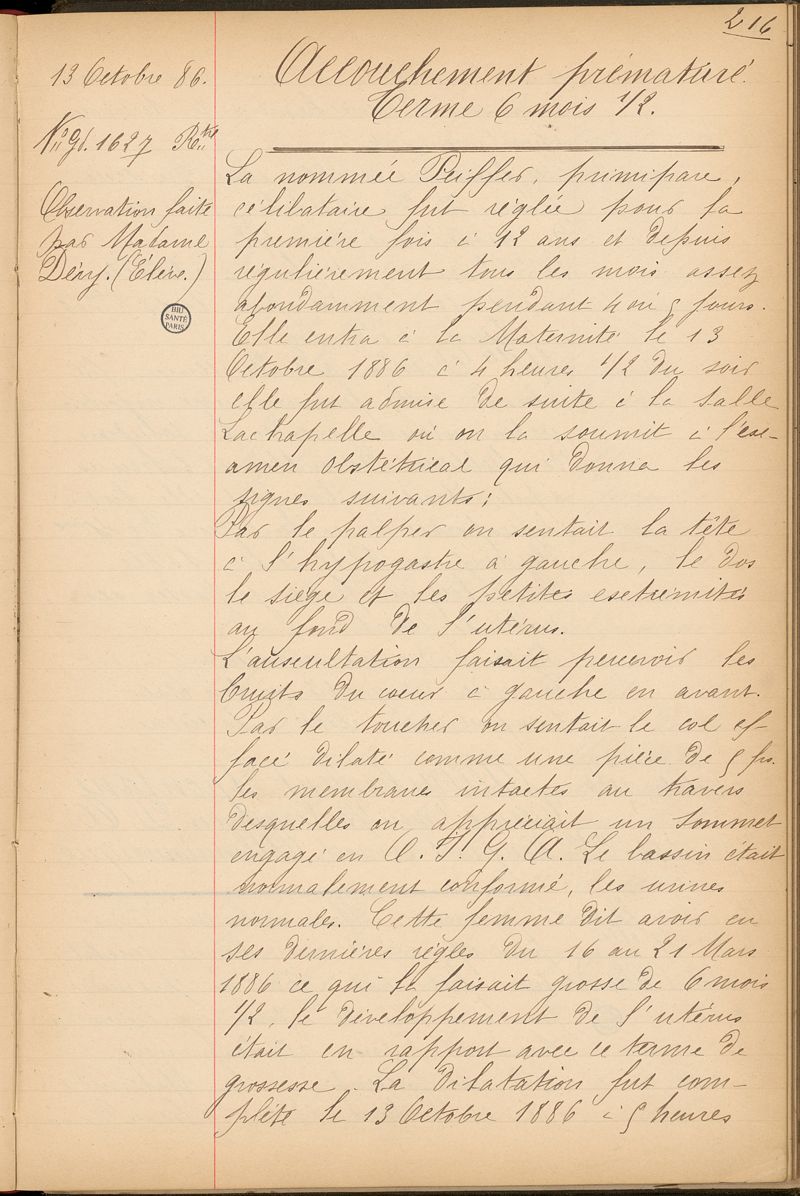 216
13 Octobre 86.
Accouchement prématuré.
Terme 6 mois 1/2.
Nº Gl. 1627 Rtre
Observation faite
par Madame
Déry. (Elève.)
BIU
SANTÉ
PARIS
La nommée Peiffer, primipare,
célibataire fut réglée pour la
première fois à 12 ans et depuis
régulièrement tous les mois assez
abondamment pendant 4 ou 5 jours.
Elle entra à la Maternité le 13
Octobre 1886 à 4 heures 1/2 du soir
elle fut admise de suite à la salle
Lachapelle où on la soumit à l'ex-
amen obstétrical qui donna les
signes suivants:
Par le palper on sentait la tête
à l'hypogastre à gauche, le dos
le siège et les petites extrémités
au fond de l'utérus.
L'auscultation faisait percevoir les
bruits du coeur à gauche en avant.
Par le toucher on sentait le col ef-
facé dilaté comme une pièce de 5 frs.
les membranes intactes au travers
desquelles on appréciait un sommet
engagé en O. I. G. A. Le bassin était
normalement conformé, les urines
normales. Cette femme dit avoir eu
ses dernières règles du 16 au 21 Mars
1886 ce qui la faisait grosse de 6 mois
1/2, le développement de l'utérus
était en rapport avec ce terme de
grossesse. La dilatation fut com-
plète le 13 Octobre 1886 à 5 heures